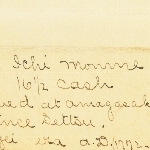 Ichi momme
16½ cash
ued at amagasak
ince Settsu,
era a.D. 1772.